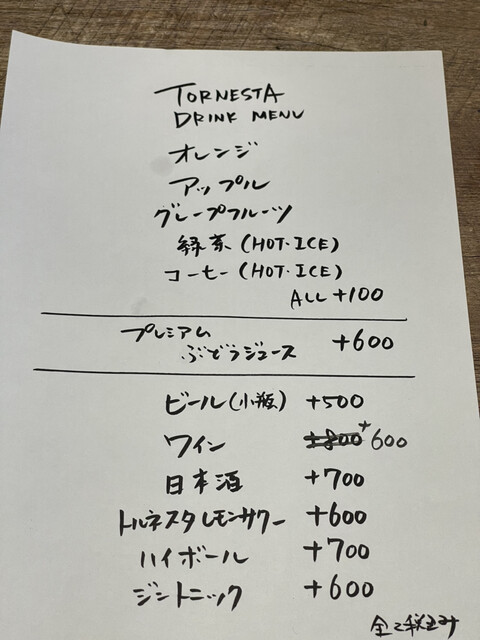 TORNESTA
DRINK MENU
オレンジ
アップル
グレープフルーツ
緑茶 (HOT・ICE)
コーヒー (HOT・ICE)
ALL +100
プレミアム
ぶどうジュース +600
ビール (小瓶) +500
ワイン ±800 +600
日本酒 +700
トルネスタレモンサワー +600
ハイボール +700
ジントニック +600
全て税込み